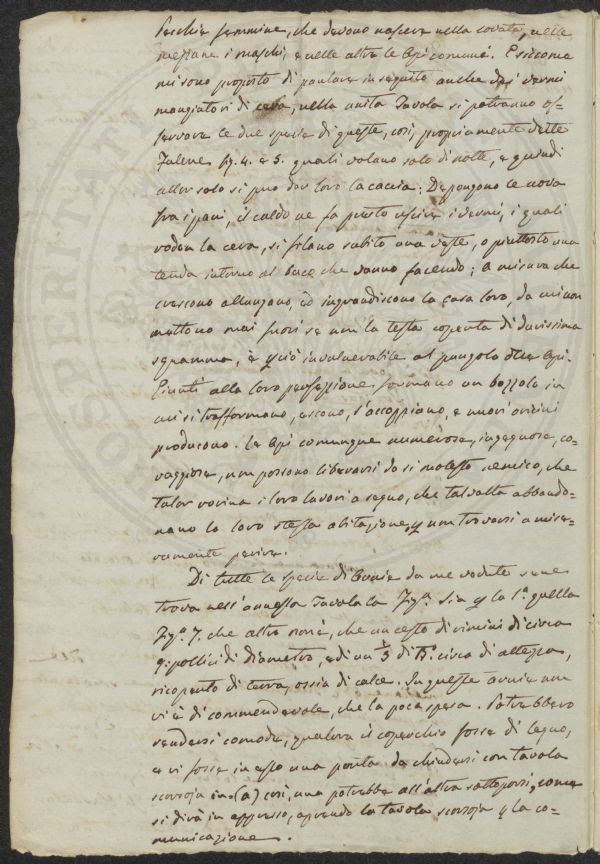 Pecchie femmine, che devono nascere nella covata, nelle
mezzane i maschi, e nelle altre le Api comuni. E siccome
mi sono proposto di parlare in seguito anche dei vermi
mangiatori di cera, nella unita Tavola si potranno os=
servare le due specie di queste, così propriamente dette
Falene fig. 4. e 5. quali volano solo di notte, e quindi
allor solo si può dar loro la caccia: Depongono le uova
fra i pani, il caldo ne fa presto uscire i vermi, i quali
rodon la cera, si filano subito una veste, o piuttosto una
tenda intorno al buco che vanno facendo; a misura che
crescono allungono, ed ingrandiscono la casa loro, da cui non
mettono mai fuori se non la testa coperta di durissima
squamma, e perciò invulnerabile al pungolo delle Api.
Giunti alla loro perfezione formano un bozzolo in
cui si trasformano, escono, s'accoppiano, e nuovi
producono. Le Api comunque numerose, ingegnose, co=
raggiose, non possono liberarsi da sì molesto nemico, che
talor rovina i loro lavori a segno, che talvolta abbando=
nano la loro stessa abitazione, per non trovarsi a mise=
ramente perire.
Di tutte le specie di Arnie da me vedute se ne
trova nell'annessa Tavola la Fig.ª Sia per la 1.ª quella
Fig.ª 7. che altro non è, che un cesto di vimini di circa
9. pollici di diametro, e di un 1/3 di circa di altezza,
ricoperto di terra, ossia di calce. In queste arnie non
vi è di commendevole, che la poca spesa. Potrebbero
rendersi comode, qualora il coperchio fosse di legno,
e vi fosse in esso una porta da chiudersi con tavola
scorsoja in=(a) così, una potrebbe all'altra sottoporsi, come
si dirà in appresso, aprendo la tavola scorsoja per la co=
municazione.